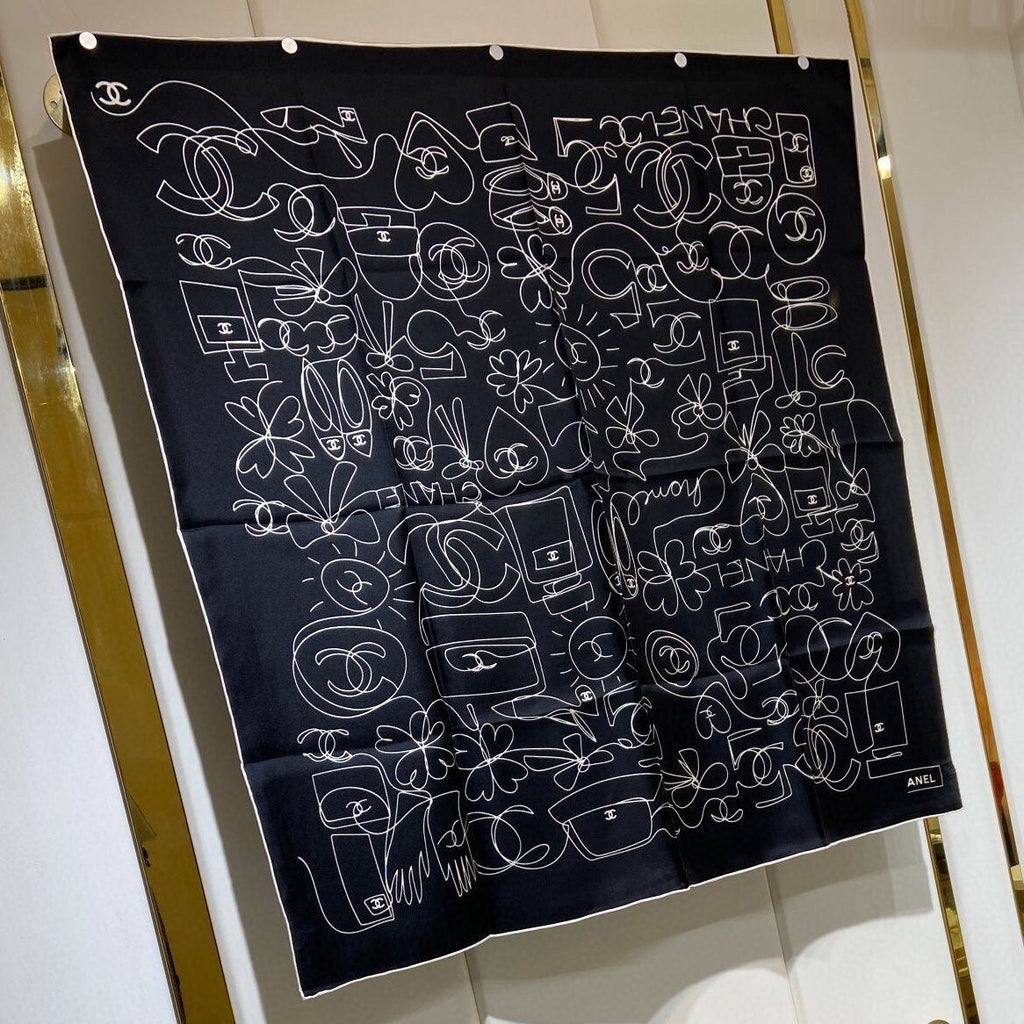 5
CHANEL
5
CHANEL
chanel
CHANEL
5
5
5
ANEL